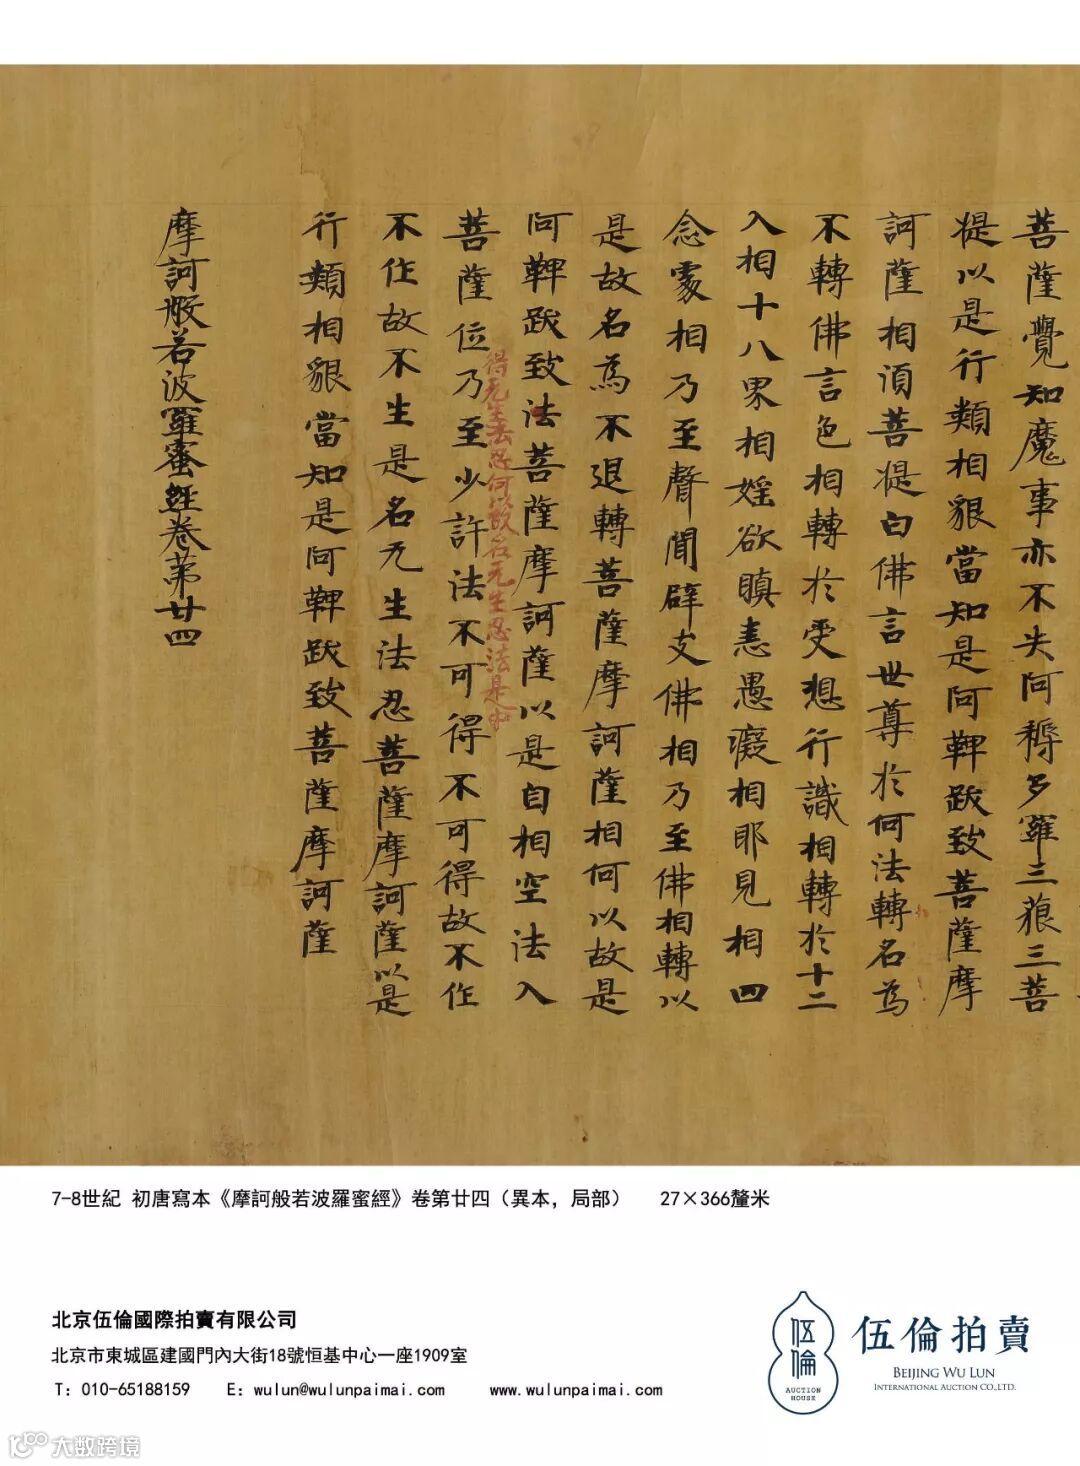 菩薩覺知魔事亦不失阿耨多羅三藐三菩
提以是行類相貌當知是阿鞞跋致菩薩摩
訶薩相須菩提白佛言世尊於何法轉名為
不轉佛言色相轉於受想行識相轉於十二
入相十八界相婬欲瞋恚愚癡相耶見相四
念處相乃至聲聞辟支佛相乃至佛相轉以
是故名為不退轉菩薩摩訶薩相何以故是
阿鞞跋致法菩薩摩訶薩以是自相空法入
得无生法忍何以故名无生忍法是中
菩薩位乃至少許法不可得不可得故不作
不作故不生是名无生法忍菩薩摩訶薩以是
行類相貌當知是阿鞞跋致菩薩摩訶薩
摩訶般若波羅蜜經卷第廿四
7-8世紀 初唐寫本《摩訶般若波羅蜜經》卷第廿四（異本，局部） 27×366釐米
北京伍倫國際拍賣有限公司
北京市東城區建國門內大街18號恒基中心一座1909室
T：010-65188159 E：wulun@wulunpaimai.com www.wulunpaimai.com
伍倫
AUCTION
HOUSE
伍倫拍賣
BEIJING WU LUN
INTERNATIONAL AUCTION CO.,LTD.
大数跨境